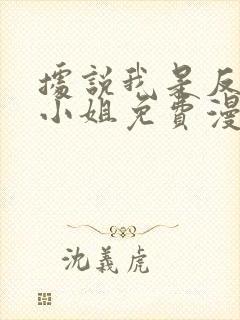 據說我是反
小姐免費漫
沈義虎